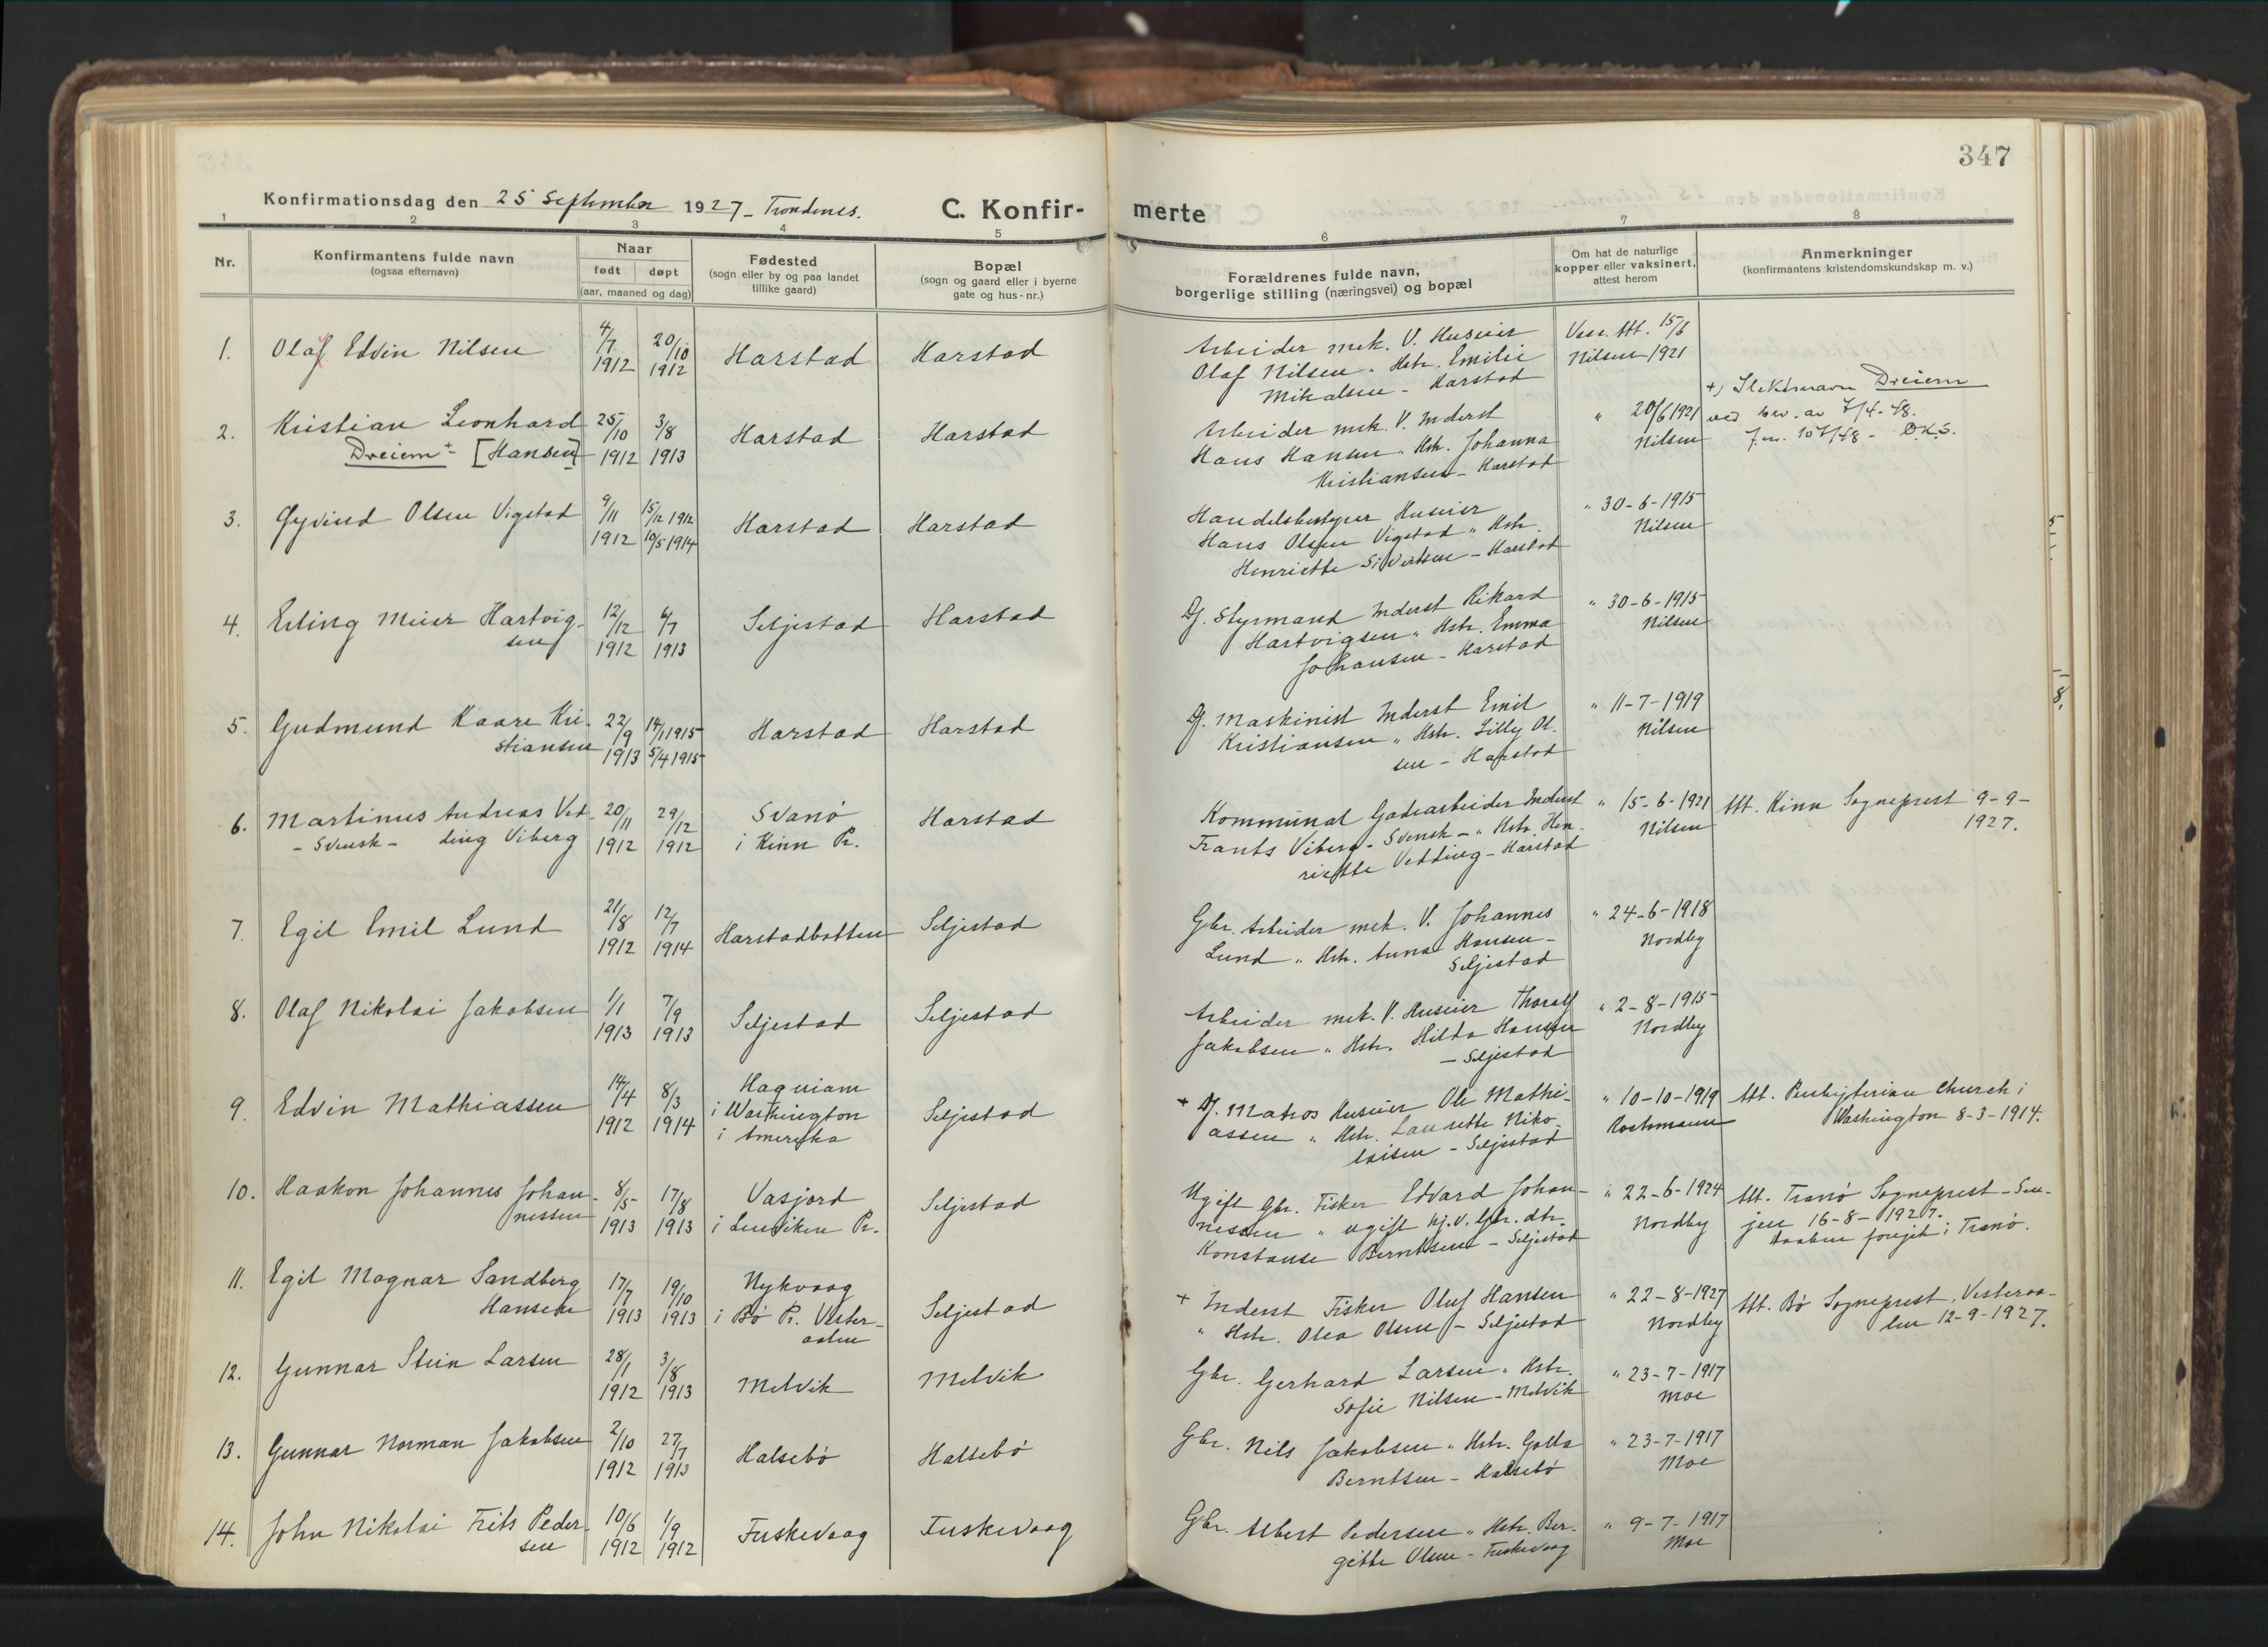 347
Konfirmationsdag den 25 September 1927 - Trondenes.
C. Konfir-
merte
1 2 3 4 5 6 7 8
Nr.
Konfirmantens fulde navn
(ogsaa efternavn)
Naar
født døpt
(aar, maaned og dag)
Fødested
(sogn eller by og paa landet
tillike gaard)
Bopæl
(sogn og gaard eller i byerne
gate og hus-nr.)
Forældrenes fulde navn,
borgerlige stilling (næringsvei) og bopæl
Om hat de naturlige
kopper eller vaksinert,
attest herom
Anmerkninger
(konfirmantens kristendomskundskap m. v.)
1. Olaf Edvin Nilsen 4/7 1912 20/10 1912 Harstad Harstad
Arbeider mek. V. Huseier
Olaf Nilsen " Hstr. Emilie
Mikalsen - Harstad
Vacc. Att. 15/6
Nilsen 1921
2. Kristian Leonhard
Dreiem + [Hansen]
25/10 1912 3/8 1913 Harstad Harstad
Arbeider mek. V. Inderst
Hans Hansen " Hstr. Johanna
Kristiansen - Harstad
" 20/6 1921
Nilsen
+) Slektsnavn Dreiem
ved bev. av 7/4-48.
J.nr. 107/48 - O.K.S.
3. Øyvind Olsen Vigstad 9/11 1912 15/12 1912 10/5 1914 Harstad Harstad
Handelsbestyrer Huseier
Hans Olsen Vigstad " Hstr.
Henriette Sivertsen - Harstad
" 30-6-1915
Nilsen
4. Erling Meier Hartvig-
sen
12/12 1912 6/7 1913 Seljestad Harstad
Df. Styrmand Inderst Rikard
Hartvigsen " Hstr. Emma
Johansen - Harstad
" 30-6-1915
Nilsen
5. Gudmund Kaare Kri-
stiansen
22/9 1913 14/1 1915 5/4 1915 Harstad Harstad
Df. Maskinist Inderst Emil
Kristiansen " Hstr. Lilly Ol-
sen - Harstad
" 11-7-1919
Nilsen
6. Martinus Andreas Ved-
- Svensk - ding Viberg
20/11 1912 29/12 1912
Svanö
i Kinn Pr.
Harstad
Kommunal Gadearbeider Inderst
Frants Viberg - Svensk - " Hstr. Hen-
riette Vedding - Harstad
" 15-6-1921
Nilsen
Att. Kinn Sogneprest 9-9-
1927.
7. Egil Emil Lund 21/8 1912 12/7 1914 Harstadbotten Seljestad
Gbr. Arbeider mek. V. Johannes
Lund " Hstr. Anna Hansen -
Seljestad
" 24-6-1918
Nordby
8. Olaf Nikolai Jakobsen 1/1 1913 7/9 1913 Seljestad Seljestad
Arbeider mek. V. Huseier Thoralf
Jakobsen " Hstr. Hilda Hansen
- Seljestad
" 2-8-1915
Nordby
9. Edvin Mathiassen 14/4 1912 8/3 1914
Haquiam
i Washington
i Amerika
Seljestad
+ Df. Matros Huseier Ole Mathi-
assen " Hstr. Laurette Niko-
laisen - Seljestad
" 10-10-1919
Att. Presbyterian Church i
Washington 8-3-1914.
10. Haakon Johannes Johan-
nessen
8/5 1913 17/8 1913
Vasjord
i Lenviken Pr.
Seljestad
Ugift Gbr. Fisker Edvard Johan-
nessen " ugift hj.v. Gbr. dtr.
Konstanse Berntsen - Seljestad
" 22-6-1924
Nordby
Att. Tranö Sogneprest - Sen-
jen 16-8-1927.
Daaben foregik i Tranö.
11. Egil Magnar Sandberg
Hansen
17/7 1913 19/10 1913
Nykvaag
i Bö Pr. Vester-
aalen
Seljestad
+ Inderst Fisker Oluf Hansen
" Hstr. Olea Olsen - Seljestad
" 22-8-1927
Nordby
Att. Bö Sogneprest, Vesteraa-
len 12-9-1927.
12. Gunnar Stein Larsen 28/1 1912 3/8 1913 Melvik Melvik
Gbr. Gerhard Larsen " Hstr.
Sofie Nilsen - Melvik
" 23-7-1917
Moe
13. Gunnar Norman Jakobsen 2/10 1912 27/7 1913 Halsebö Halsebö
Gbr. Nils Jakobsen " Hstr. Golla
Berntsen - Halsebö
" 23-7-1917
Moe
14. John Nikolai Frits Peder-
sen
10/6 1912 1/9 1912 Fuskevaag Fuskevaag
Gbr. Albert Pedersen " Hstr. Ber-
gitte Olsen - Fuskevaag
" 9-7-1917
Moe